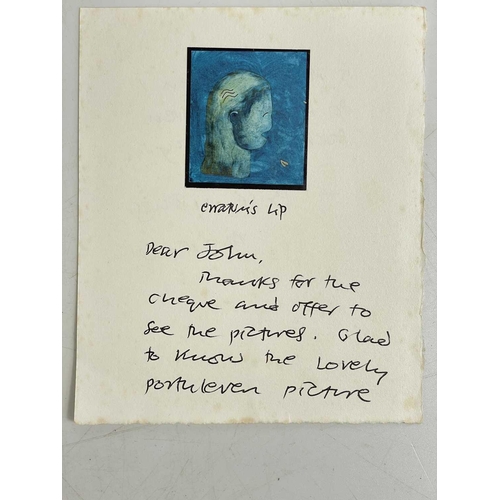 Lip
Dear John,
Thanks for the
cheque and offer to
see the pictures. Glad
to know the Lovely
portuleven picture